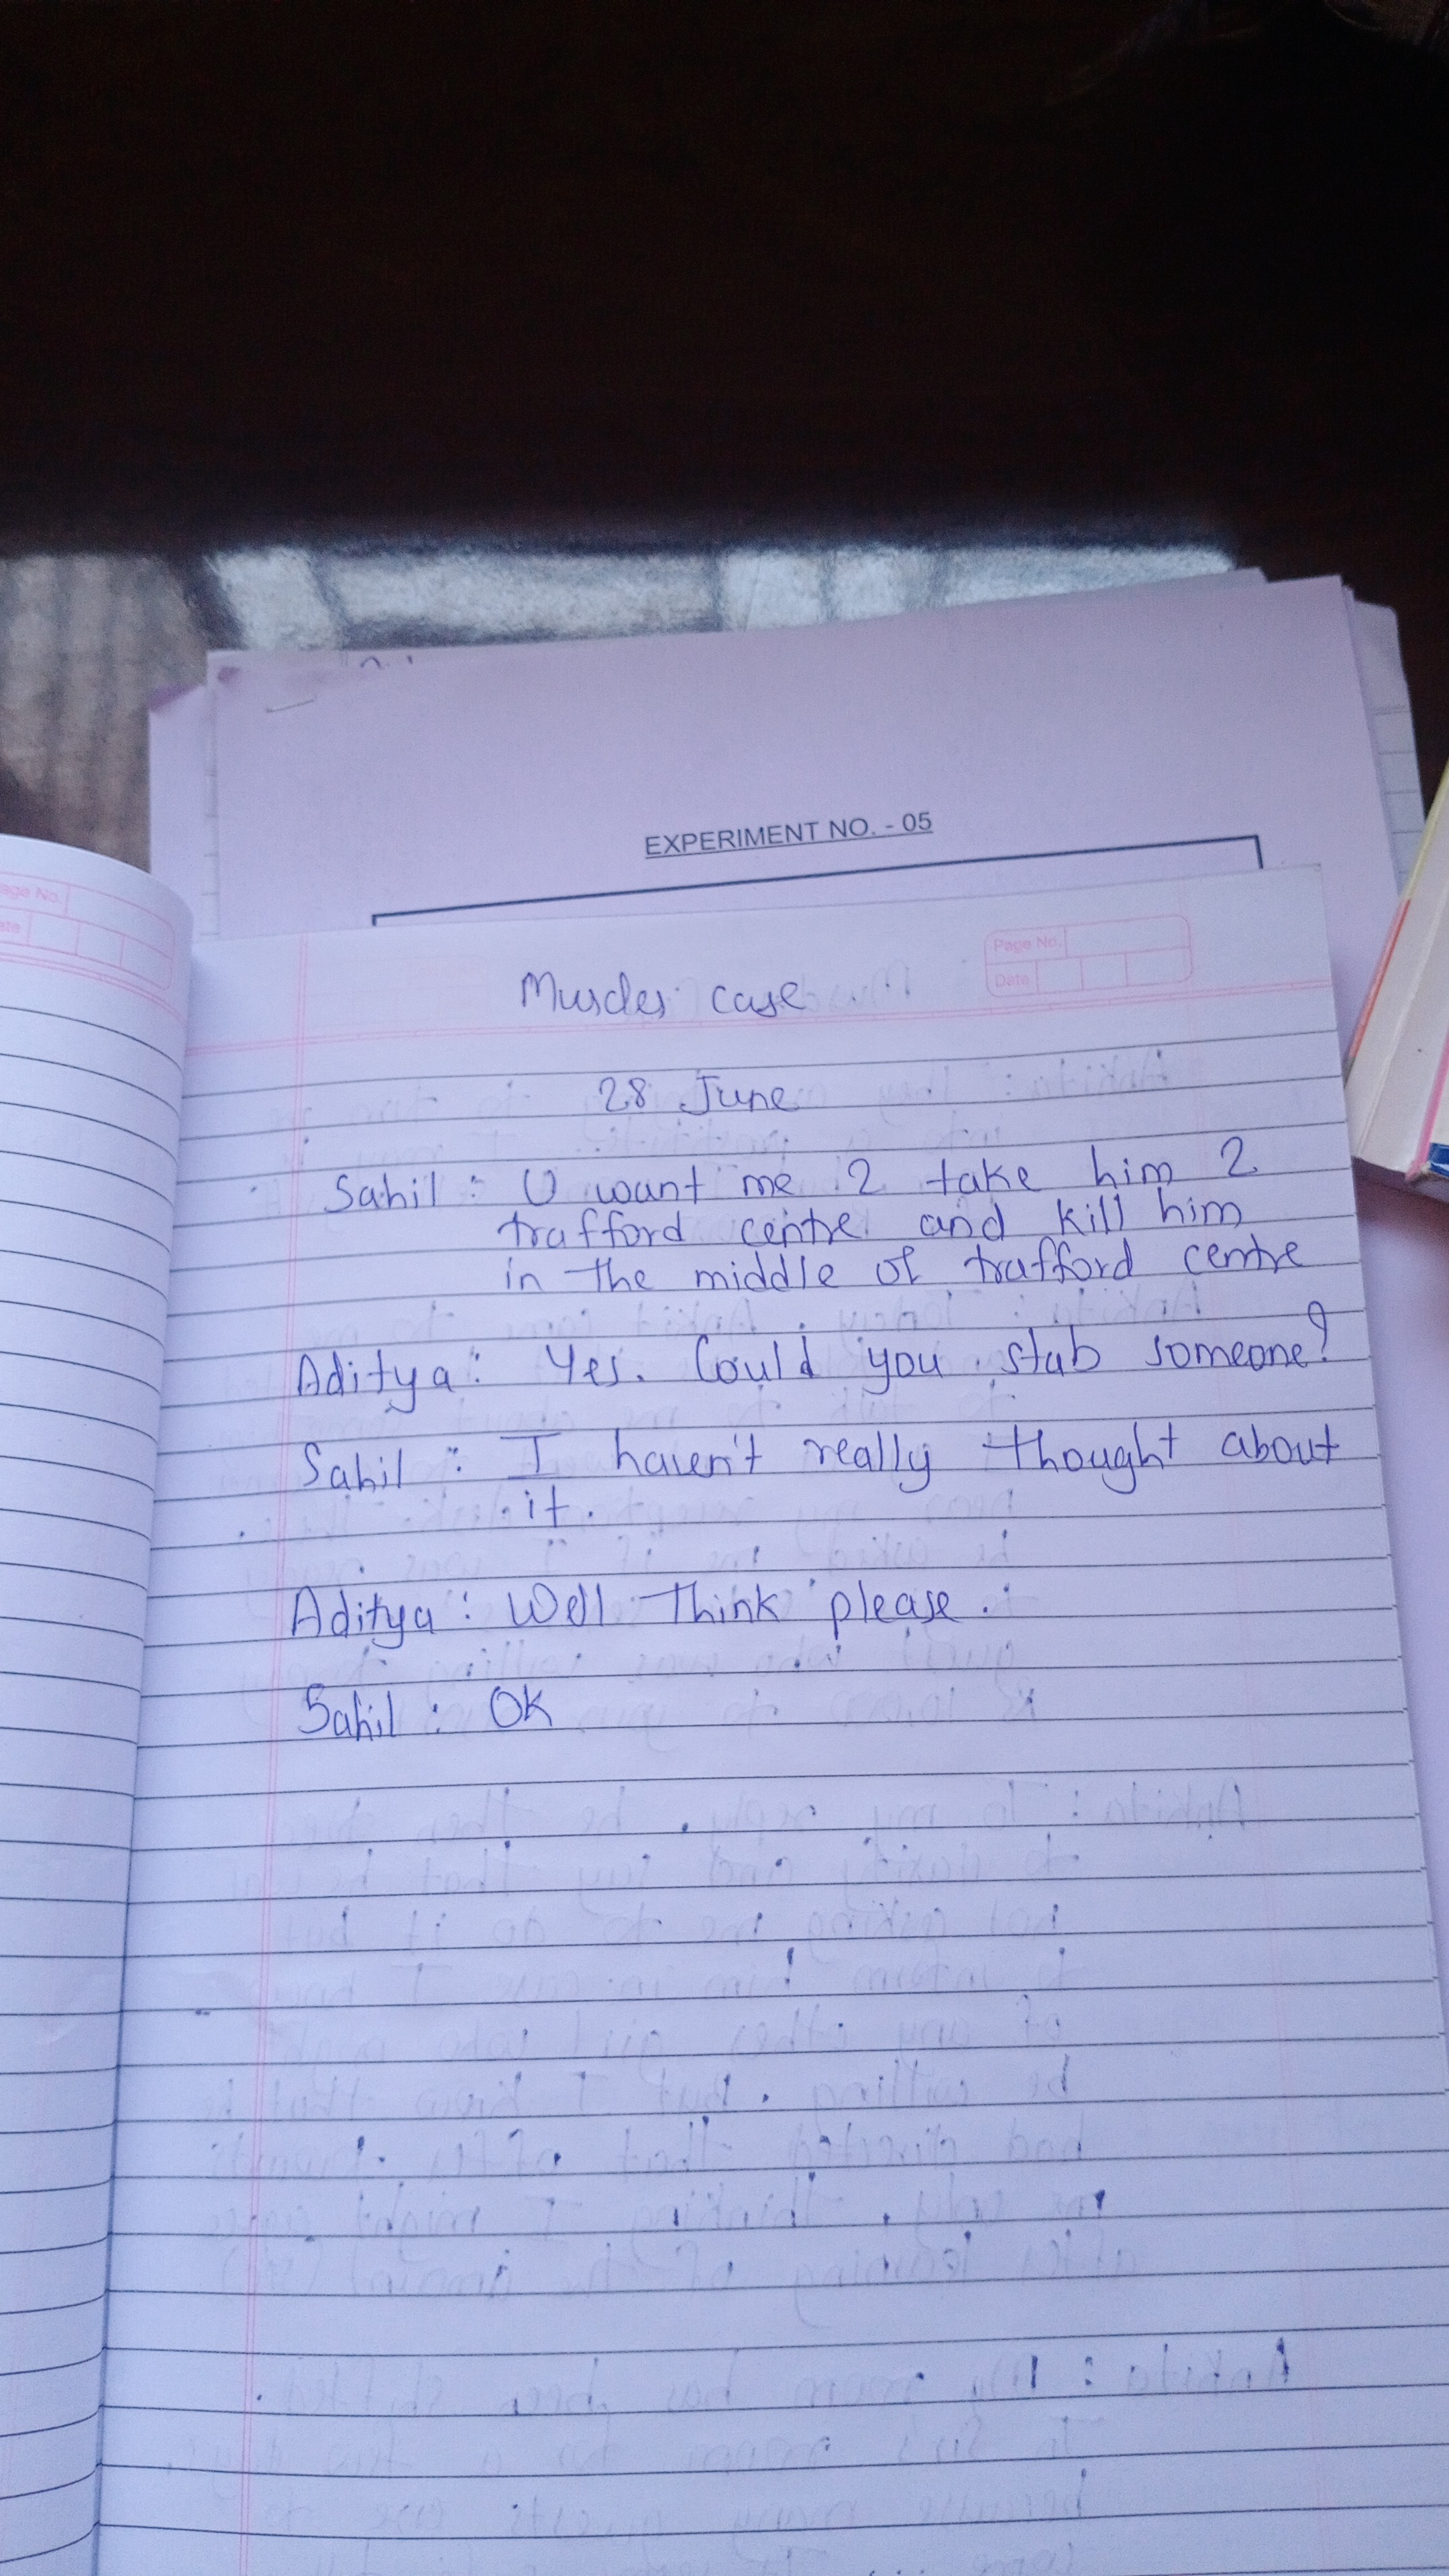 EXPERIMENT NO. - 05
Page No.
Date
Page No.
Date
Murder case
28 June
Sahil : U want me 2 take him 2
trafford centre and kill him
in the middle of trafford centre
Aditya : Yes. Could you stab someone?
Sahil : I haven't really thought about
it.
Aditya : Well think please.
Sahil : OK